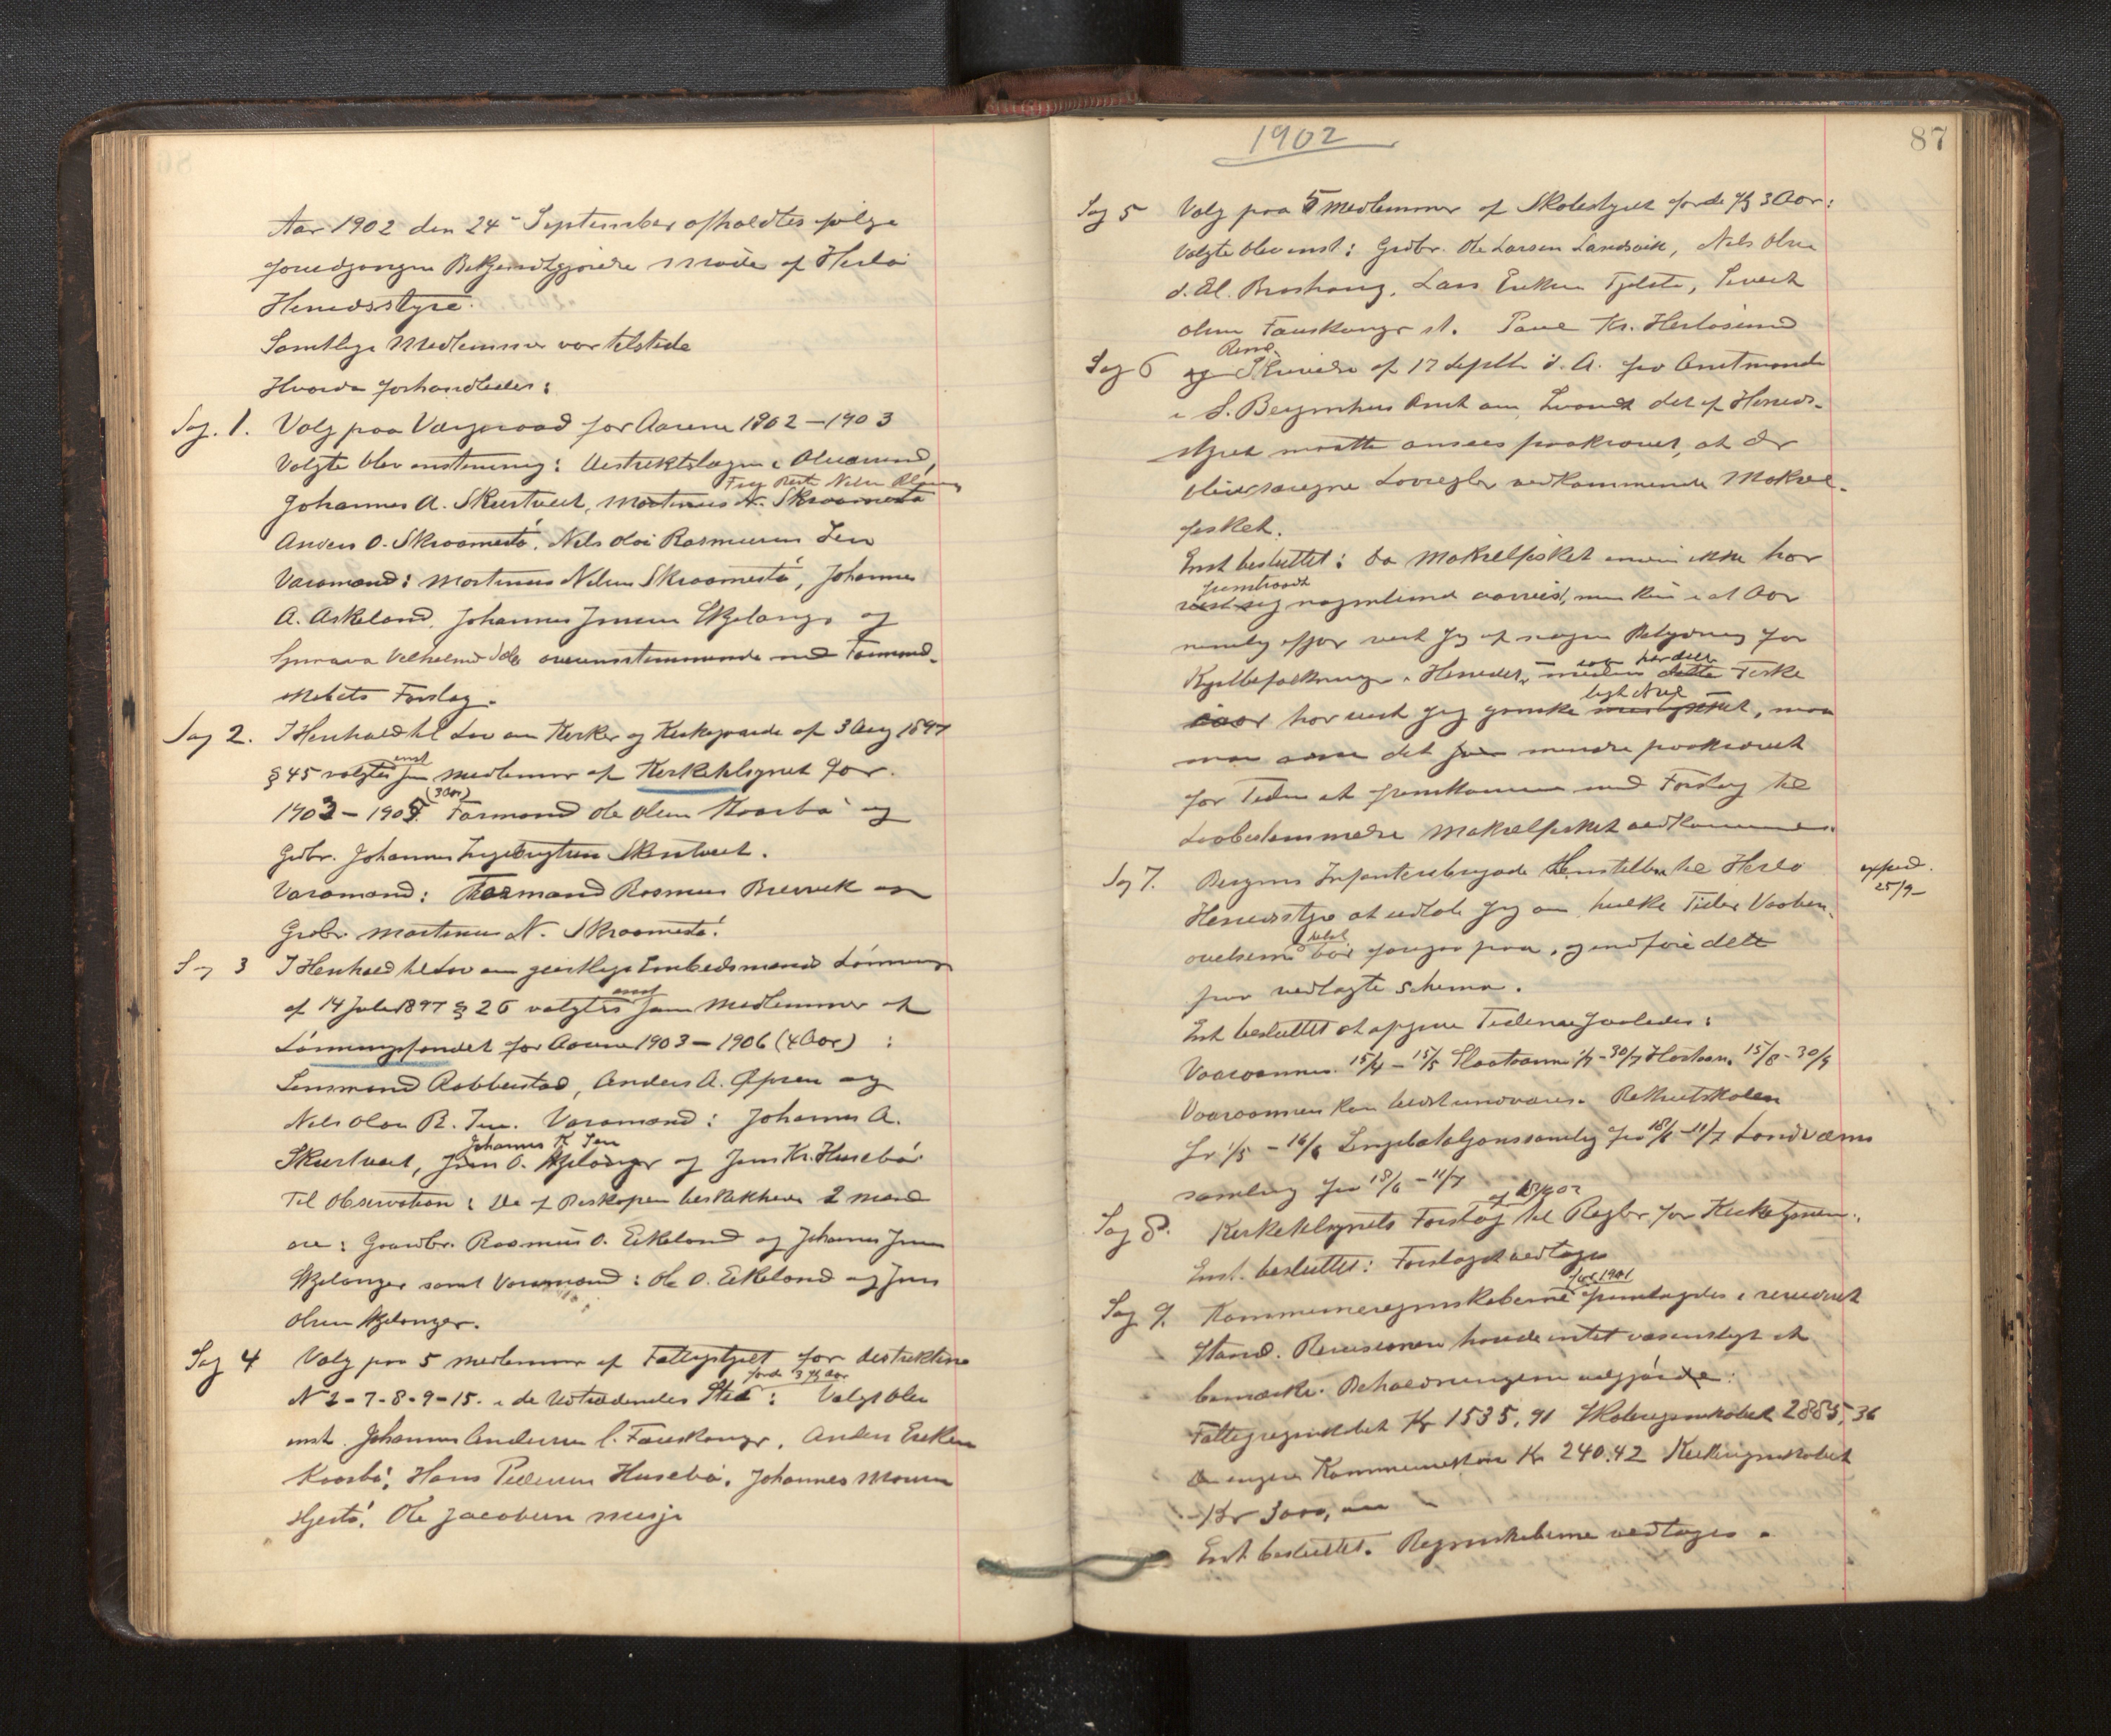 Aar 1902 den 24 September afholdtes ifølge
foregangen Bekjendtgjørelse Møde af Herlø
Herredsstyre.
Samtlige Medlemmer var tilstede
Hvorda forhandledes:
Sag. 1. Valg paa Vergeraad for Aarene 1902–1903
Valgte blev enstemmig: Distriktslægen i Alversund,
Johannes A. Skurtveit, Martinus N. Skraamestø
Anders O. Skraamestø, Nels Rasmussen
Varamænd: Martinus Nelsen Skraamestø, Johannes
A. Askeland, Johannes Jensen Skjelanger og
Vilhelmine overensstemmende med Formand-
skabets Forslag.
Sag 2. I Henhold til Lov om Kirker og Kirkegaarde af 3 Aug 1897
§ 45 valgtes enst som Medlemmer af Kirketilsynet for
1903–1905 (3 Aar) Formand Ole Olsen Kaarbø og
Grdbr. Johannes Ingebrigtsen Skurtveit.
Varamænd: Formand Rasmus Brervik og
Grdbr. Martinus N. Skraamestø.
Sag 3 I Henhold til Lov om geistlige Embedsmænds Lønning
af 14 Juli 1897 § 26 valgtes enst som Medlemmer af
Lønningsfondet for Aarene 1903–1906 (4 Aar) :
Lensmand Rabbestad, Anders A. og
Nels Olai R. Varamænd: Johannes A.
Johannes K.
Skurtveit, Jens O. Skjelanger og Jens Kr. Husebø
Til Observation: De af Biskopen beskikkede 2 Mænd
ere: Gaardbr. Rasmus O. Eikeland og Johannes Jensen
Skjelanger samt Varamænd: Ole O. Eikeland og Jens
Olsen Skjelanger.
Sag 4 Valg paa 5 Medlemmer af Fattigstyret for Distriktene
for de 3 Aar
N 2-7-8-9-15. i de Udtrædendes Sted: Valgt blev
enst. Johannes Andersen l. Fauskanger, Anders Eriksen
Kaarbø, Hans Pedersen Husebø, Johannes Monsen
Gjestø, Ole Jacobsen
1902
87
Sag 5 Valg paa 5 Medlemmer af Skolestyret for de 3 Aar:
Valgte blev enst: Grdbr. Ole Larsen Landsvik, Nels Olsen
Lars Eriksen Tjeldstø, Sivert
Olsen Fauskanger st. Paul Kr. Herløsund
Sag 6 Skrivelse af 17 Septbr d. A. fra Amtmanden
i S. Bergenhus Amt om, hvorvidt det af Herreds-
styret maatte ansees paakrævet, at der
bliver Lovregler vedkommende Makrel-
fisket.
Enst besluttet: Da Makrelfisket endnu ikke har
sig men kun i et Aar
nemlig ifjor vist sig af nogen Betydning for
Kystbefolkningen i Herredet, Fiske
har vist sig ganske , maa
man anse det mindre paakrævet
for Tiden at fremkomme med Forslag til
Lovbestemmelse Makrelfisket vedkommende.
Sag 7. Bergens Infanteribrigade Henstillen til Herlø
Herredsstyre at udtale sig om, hvilke Tider Vaaben-
øvelserne bør foregaa paa, og indføre dette
paa vedlagte Schema.
exped.
25/9-
Enst besluttet at opgive Tiderne saaledes:
Vaaraannen 15/4 – 15/5 Slaataannen 1/7 – 30/7 Høstaan. 15/8 – 30/9
Vaaraannen kan bedst undværes. Rekrutskolen
fr 1/5 – 16/6 Linjebataljonssamling fra 18/6 – 11/7 Landværns
samling fra 18/6 – 11/7
Sag 8. Kirketilsynets Forslag til Regler for Kirketjeneren
Enst. besluttet: Forslaget vedtages
Sag 9. Kommuneregnskaberne for 1901 fremlagdes i revideret
Stand. Revisionen havde intet væsentligt at
bemærke. Beholdningerne udgjorde:
Fattigregnskabet Kr 1535,91 Skoleregnskabet 2885,36
Den egen Kommunekasse Kr 240.42 Kirkeregnskabet
Kr 3000,
Enst besluttet. Regnskaberne vedtages.